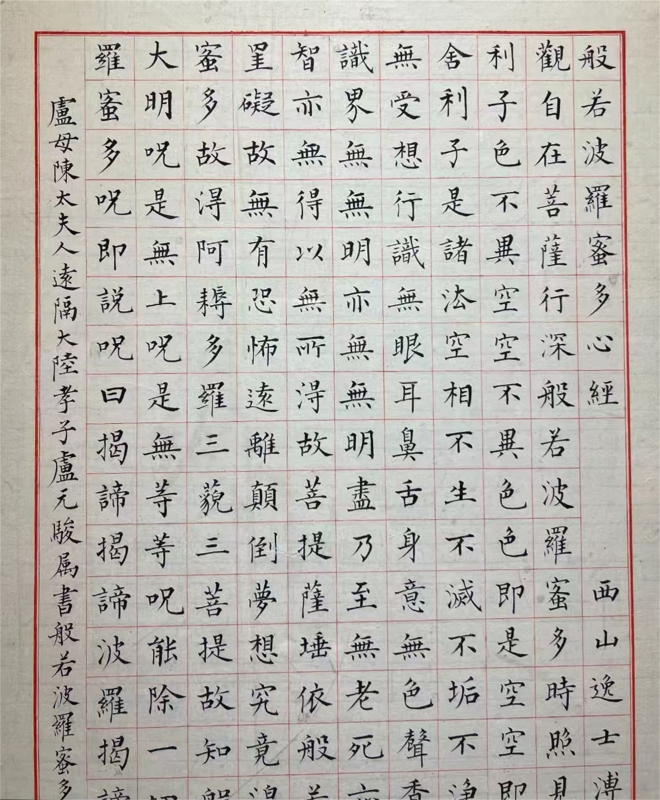 般若波羅蜜多心經 西山逸士溥
觀自在菩薩行深般若波羅蜜多時照見
利子色不異空空不異色色即是空空即
舍利子是諸法空相不生不滅不垢不淨
無受想行識無眼耳鼻舌身意無色聲香
識界無無明亦無無明盡乃至無老死亦
智亦無得以無所淂故菩提薩埵依般若
罣礙故無有恐怖遠離顛倒夢想究竟涅
蜜多故淂阿耨多羅三藐三菩提故知般
大明呪是無上呪是無等等呪能除一切
羅蜜多呪即說呪曰揭諦揭諦波羅揭諦
盧母陳太夫人遠隔大陸孝子盧元駿属書般若波羅蜜多